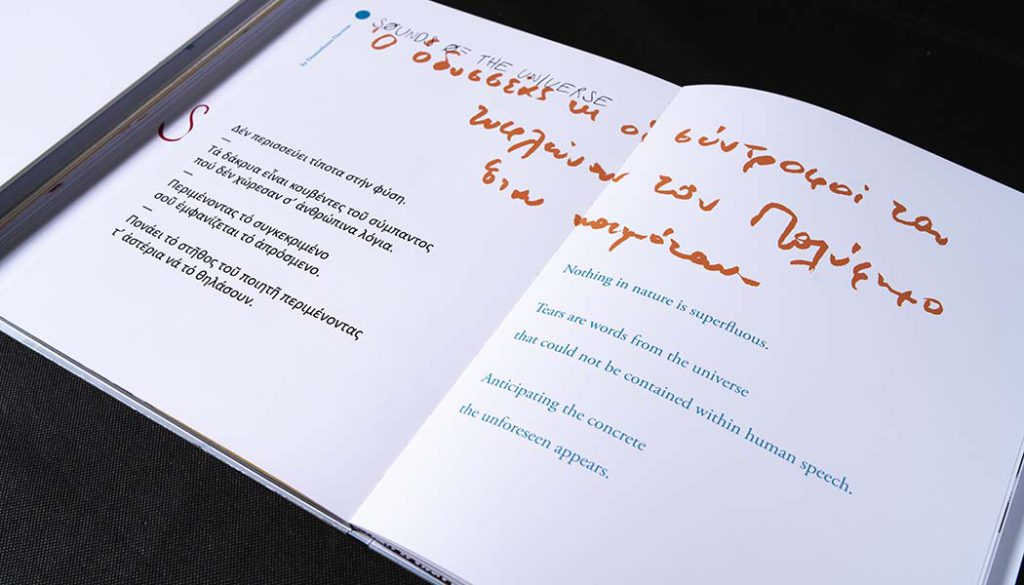 by Demosthenes Davvetas
SOUNDS OF THE UNIVERSE
Ο οδυσσέας κι οι σύντροφοι του
τυφλώνουν τον Πολύφημο
όταν κοιμόταν
S
Δέν περισσεύει τίποτα στήν φύση.
—
Τά δάκρυα εἶναι κουβέντες τοῦ σύμπαντος
πού δέν χώρεσαν σ᾽ ἀνθρώπινα λόγια.
—
Περιμένοντας τό συγκεκριμένο
σοῦ ἐμφανίζεται τό ἀπρόσμενο.
—
Πονάει τό στῆθος τοῦ ποιητῆ περιμένοντας
τ᾽ ἀστέρια νά τό θηλάσουν.
Nothing in nature is superfluous.
Tears are words from the universe
that could not be contained within human speech.
Anticipating the concrete
the unforeseen appears.